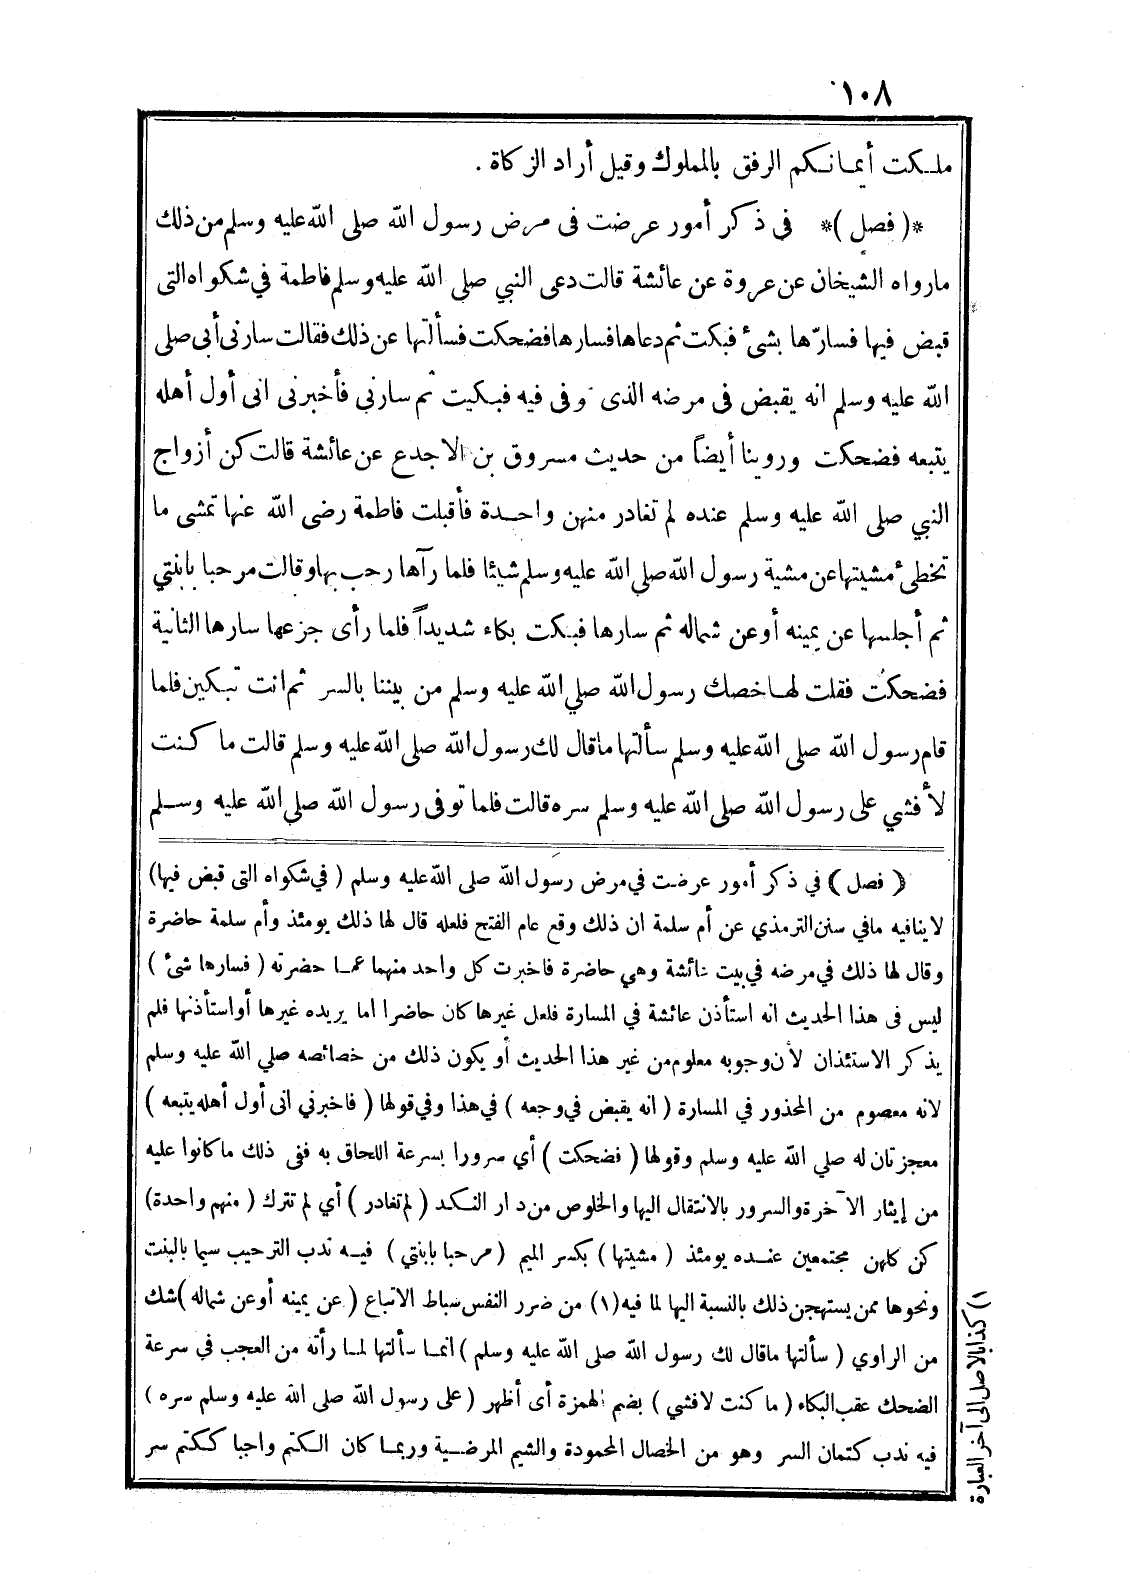 ١٠٨
ملكت أيمانكم الرفق بالمملوك وقيل أراد الزكاة .
*( فصل )* في ذكر أمور عرضت في مرض رسول الله صلى الله عليه وسلم من ذلك
مارواه الشيخان عن عروة عن عائشة قالت دعى النبي صلى الله عليه وسلم فاطمة في شكواه التى
قبض فيها فسارّها بشئ فبكت ثم دعاها فسارها فضحكت فسألتها عن ذلك فقالت سارنى أبى صلى
الله عليه وسلم انه يقبض فى مرضه الذى وفى فيه فبكيت ثم سارني فأخبرنى انى أول أهله
يتبعه فضحكت وروينا أيضاً من حديث مسروق بن الاجدع عن عائشة قالت كن أزواج
النبي صلى الله عليه وسلم عنده لم تغادر منهن واحدة فأقبلت فاطمة رضى الله عنها تمشى ما
تخطئ مشيتها عن مشية رسول الله صلى الله عليه وسلم شيئا فلما رآها رحب بها وقالت مرحبا بابنتي
ثم أجلسها عن يمينه أوعن شماله ثم سارها فبكت بكاء شديداً فلما رأى جزعها سارها الثانية
فضحكت فقلت لها خصك رسول الله صلي الله عليه وسلم من بيننا بالسر ثم انت تبكين فلما
قام رسول الله صلى الله عليه وسلم سألتها ماقال لك رسول الله صلى الله عليه وسلم قالت ما كنت
لأفشي على رسول الله صلى الله عليه وسلم سره قالت فلما توفى رسول الله صلى الله عليه وسلم
( فصل ) في ذكر أمور عرضت في مرض رسول الله صلى الله عليه وسلم ( في شكواه التى قبض فيها )
لاينافيه مافي سنن الترمذي عن أم سلمة ان ذلك وقع عام الفتح فلعله قال لها ذلك يومئذ وأم سلمة حاضرة
وقال لها ذلك في مرضه في بيت عائشة وهي حاضرة فاخبرت كل واحد منهما عما حضرته ( فسارها شئ )
ليس فى هذا الحديث انه استأذن عائشة في المسارة فلعل غيرها كان حاضرا اما يريده غيرها أو استأذنها فلم
يذكر الاستئذان لأن وجوبه معلوم من غير هذا الحديث أو يكون ذلك من خصائصه صلي الله عليه وسلم
لانه معصوم من المحذور في المسارة ( انه يقبض في وجعه ) في هذا وفي قولها ( فاخبرني انى أول أهله يتبعه )
معجزتان له صلي الله عليه وسلم وقولها ( فضحكت ) أي سرورا بسرعة اللحاق به ففى ذلك ماكانوا عليه
من إيثار الآخرة والسرور بالانتقال اليها والخلوص من دار النكد ( لم تغادر ) أي لم تترك ( منهم واحدة )
كن كلهن مجتمعين عنده يومئذ ( مشيتها ) بكسر الميم ( مرحبا بابنتي ) فيه ندب الترحيب سيما بالبنت
ونحوها ممن يستهجن ذلك بالنسبة اليها لما فيه (١) من ضرر النفس سباط الاتباع ( عن يمينه أوعن شماله ) شك
من الراوي ( سألتها ماقال لك رسول الله صلى الله عليه وسلم ) انما سألتها لما رأته من العجب في سرعة
الضحك عقب البكاء ( ما كنت لافشي ) بضم الهمزة أى أظهر ( على رسول الله صلى الله عليه وسلم سره )
فيه ندب كتمان السر وهو من الخصال المحمودة والشيم المرضية وربما كان الكتم واجبا ككتم سر
١) كذا بالاصل الى آخر العبارة